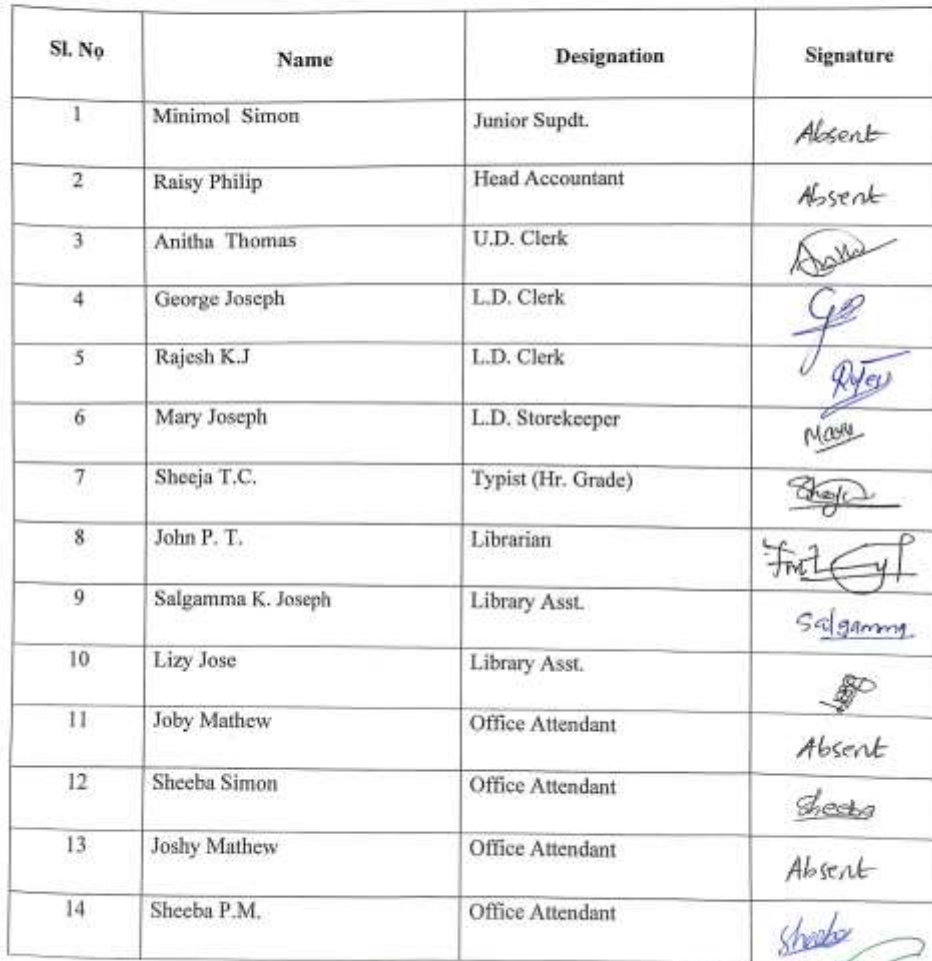 Sl. No Name Designation Signature
1 Minimol Simon Junior Supdt. Absent
2 Raisy Philip Head Accountant Absent
3 Anitha Thomas U.D. Clerk
4 George Joseph L.D. Clerk
5 Rajesh K.J L.D. Clerk
6 Mary Joseph L.D. Storekeeper
7 Sheeja T.C. Typist (Hr. Grade)
8 John P. T. Librarian
9 Salgamma K. Joseph Library Asst. Salgamma
10 Lizy Jose Library Asst.
11 Joby Mathew Office Attendant Absent
12 Sheeba Simon Office Attendant Sheeba
13 Joshy Mathew Office Attendant Absent
14 Sheeba P.M. Office Attendant Sheeba